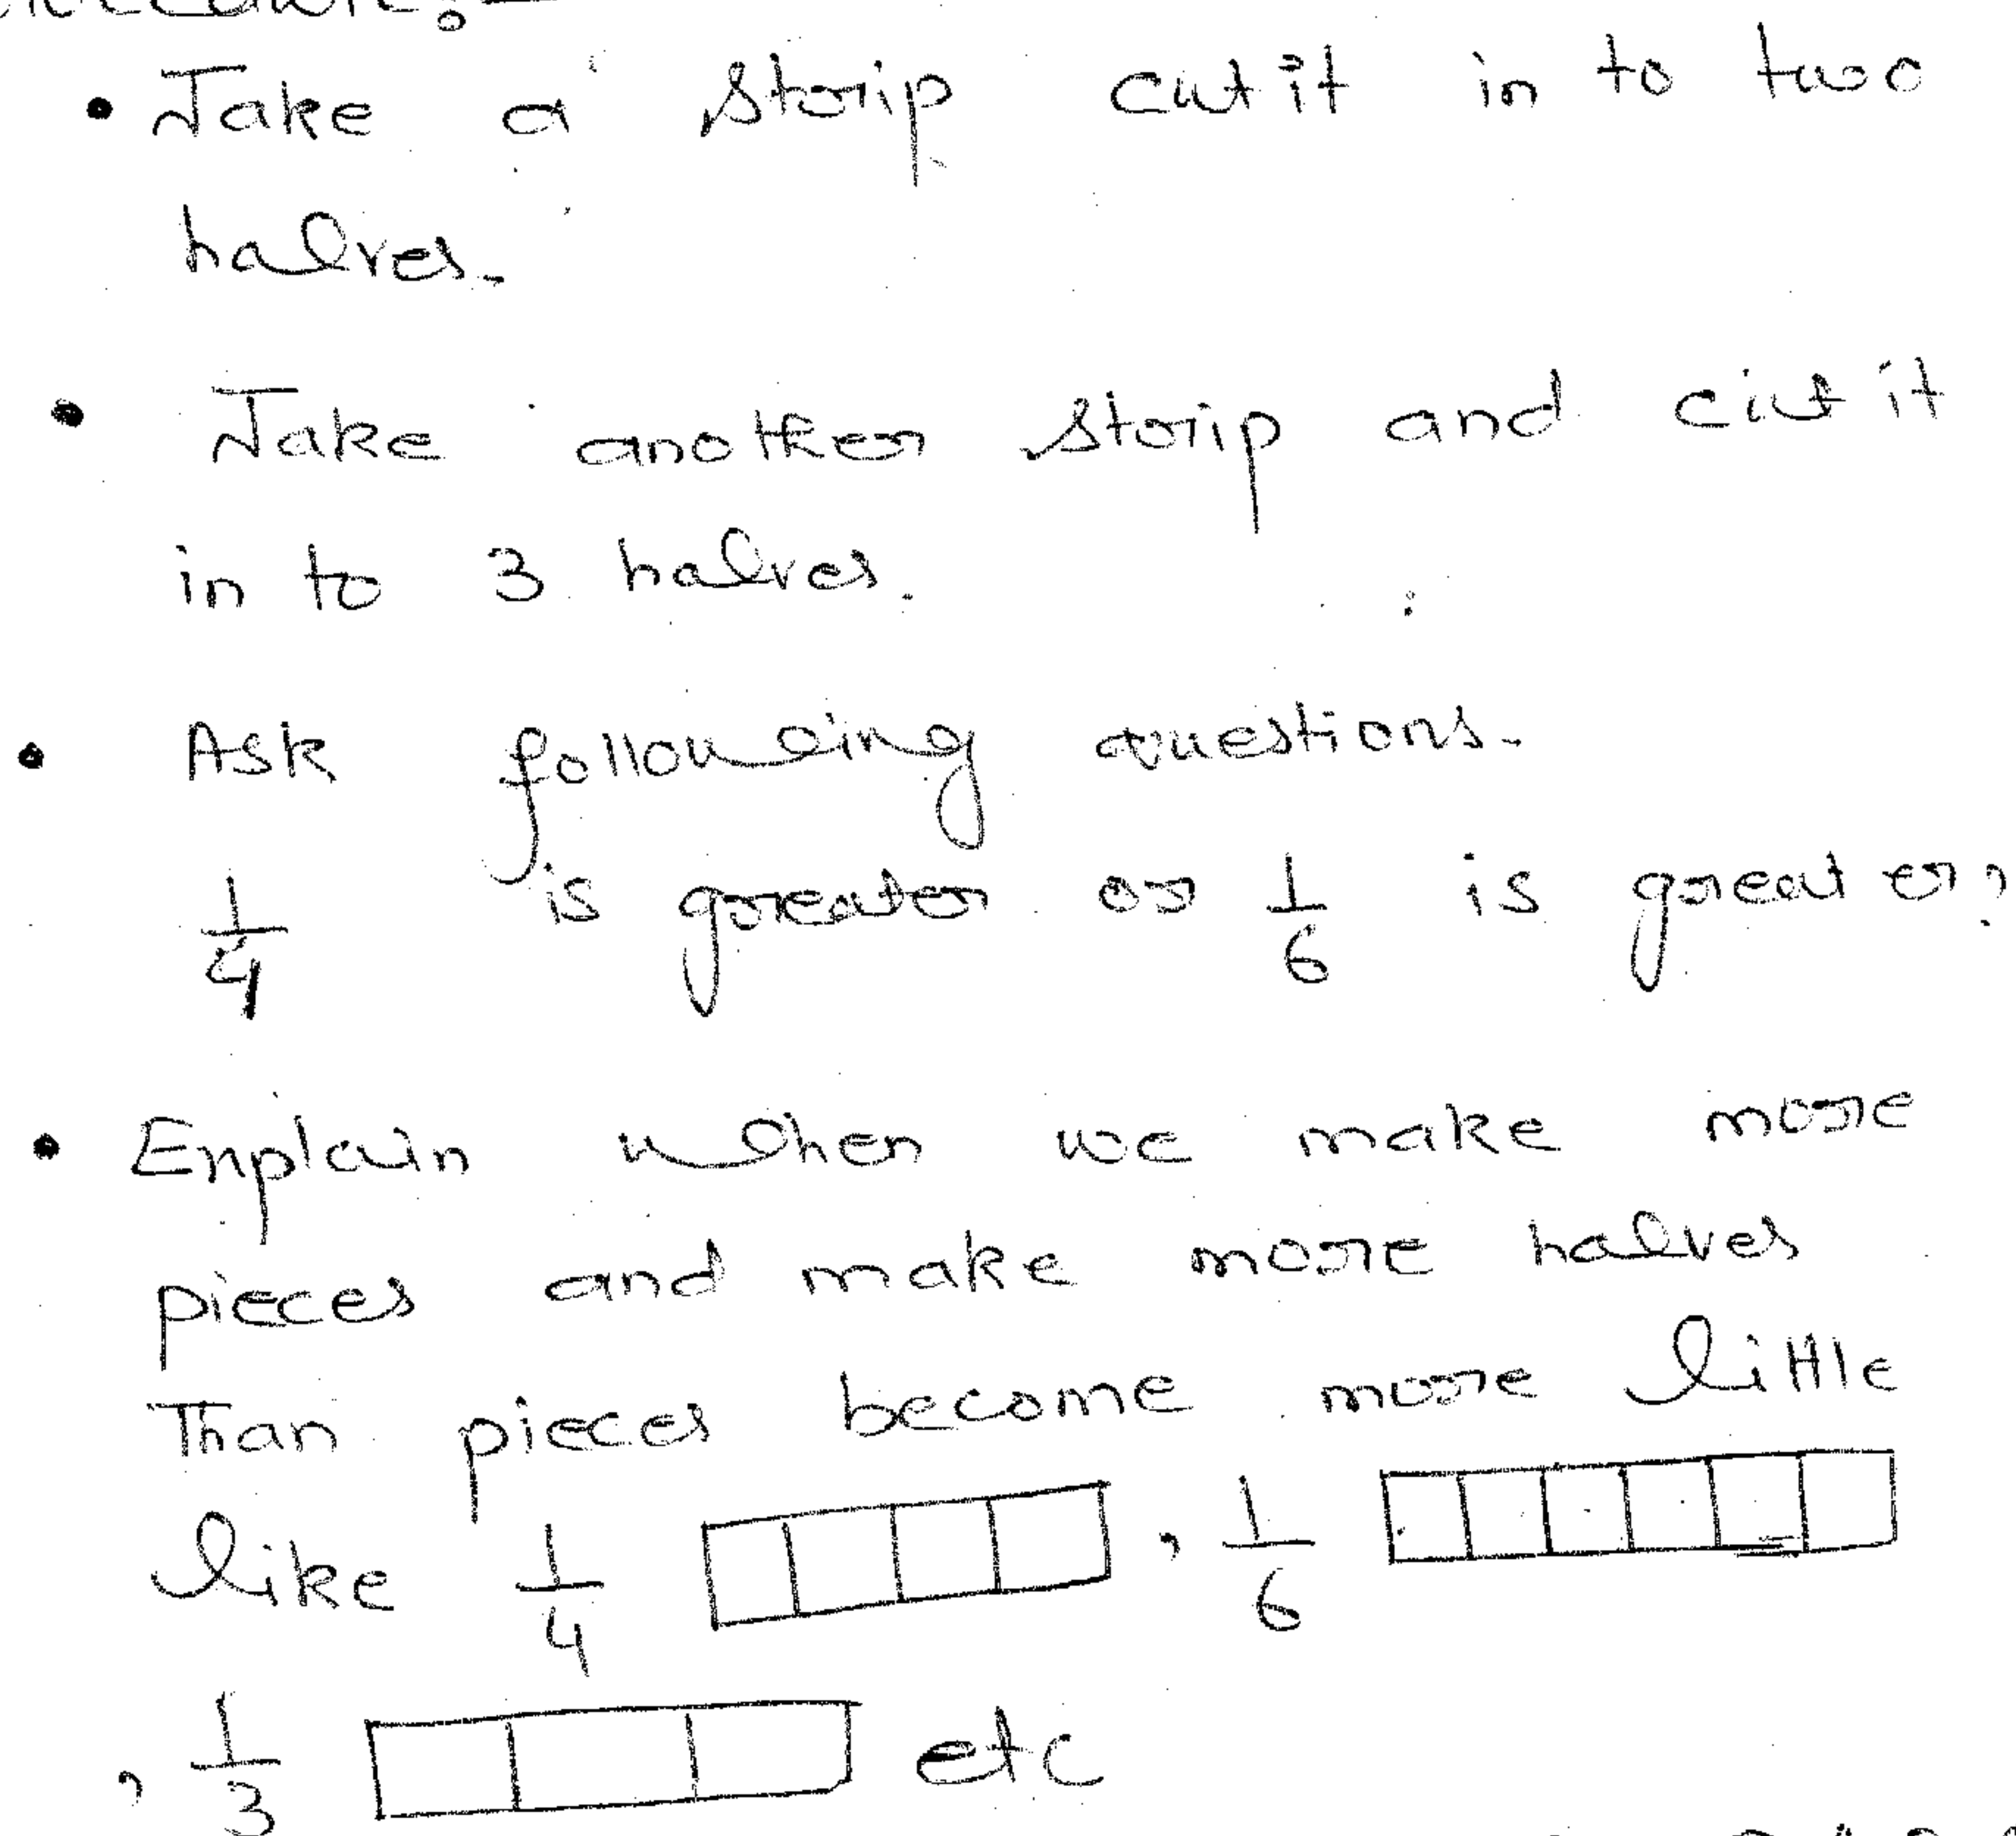 • Take a strip cut it in to two
halves.
• Take another strip and cut it
in to 3 halves.
• Ask following questions.
1/4 is greater or 1/6 is greater?
• Explain when we make more
pieces and make more halves
Than pieces become more little
like 1/4 , 1/6
, 1/3 etc